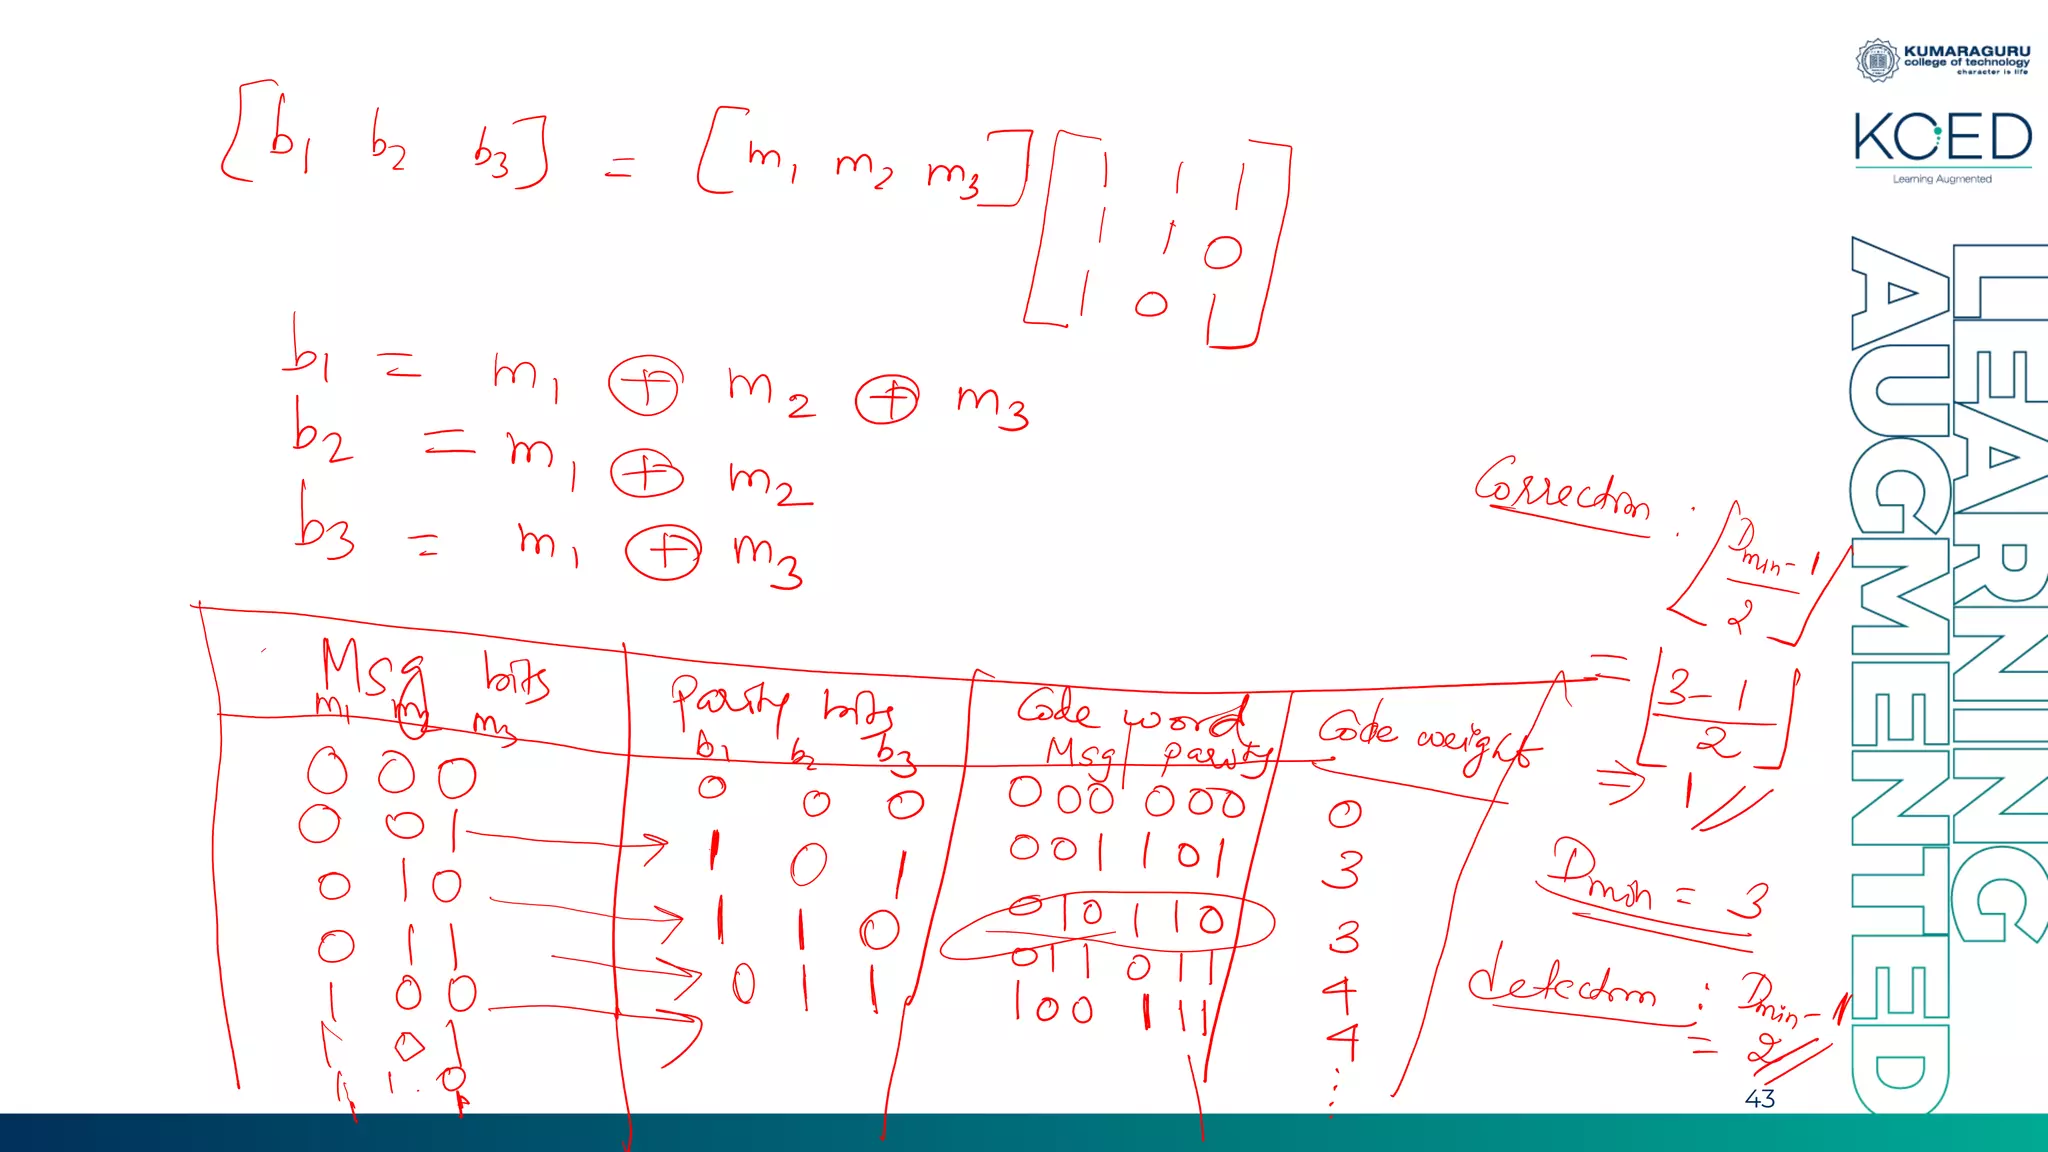 KUMARAGURU
college of technology
character is life
KCED
Learning Augmented
LEARNING
AUGMENTED
[b1 b2 b3] = [m1 m2 m3] [1 1 1
1 1 0
1 0 1]
b1 = m1 ⊕ m2 ⊕ m3
b2 = m1 ⊕ m2
b3 = m1 ⊕ m3
Correction : ⌊Dmin-1
2⌋
= ⌊3-1
2⌋
⇒ 1
Dmin = 3
detection : Dmin-1
= 2
Msg bits Parity bits Code word Code weight
m1 m2 m3 b1 b2 b3 Msg | Parity
0 0 0 0 0 0 000 000 0
0 0 1 → 1 0 1 001 101 3
0 1 0 → 1 1 0 010 110 3
0 1 1 → 0 1 1 011 011 4
1 0 0 → 100 111 4
1 0 1
1 1 0
43